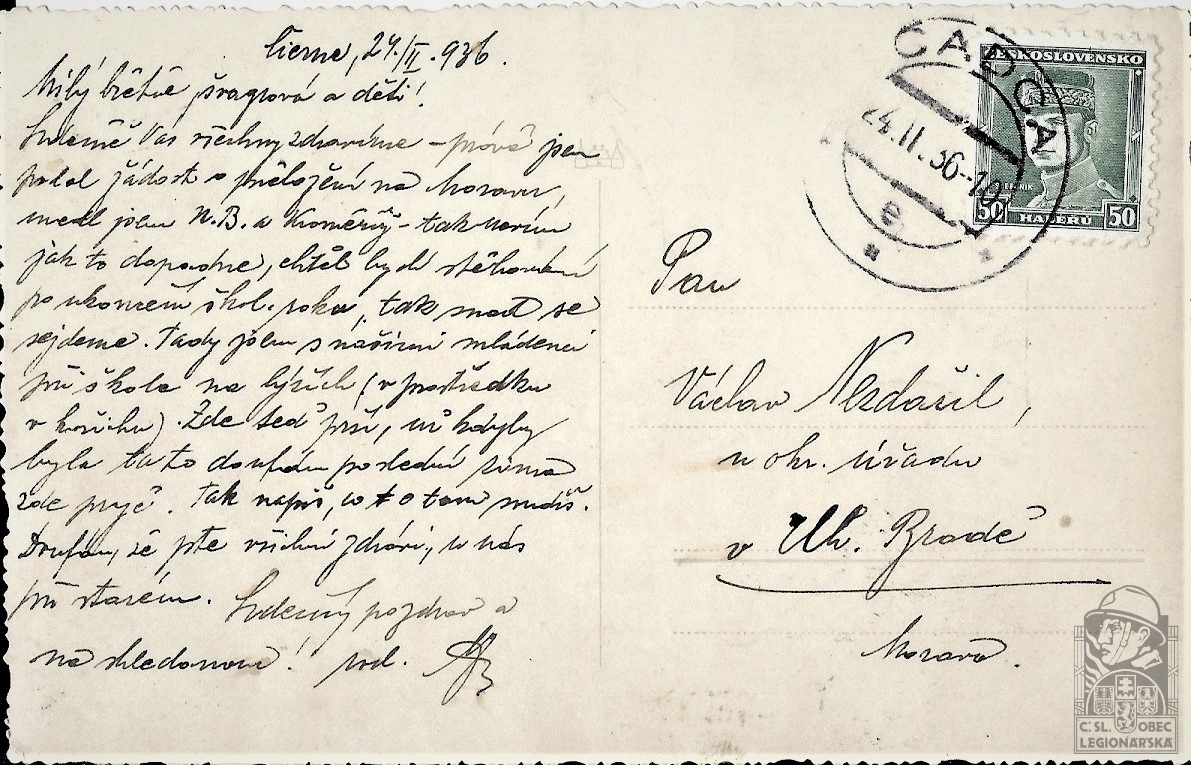 Čierne, 24./II. 936.
Milý bratře, švagrová a děti!
Srdečně Vás všechny zdravíme – právě jsem
podal žádost o přeložení na Moravu,
uvedl jsem U.B. a Kroměříž – tak nevím
jak to dopadne, chtěl bych stěhování
po ukončení škol. roku, tak snad se
sejdeme. Tady jsem s našimi mládenci
při škole na lyžích (v prostředku
v kožichu). Zde teď prší, už kdyby
byla tato doufám poslední zima
zde pryč. Tak napiš, co o tom soudíš.
Doufám, že jste všichni zdrávi, u nás
při starém. Srdečný pozdrav a
na shledanou!
ČADCA
24.II.36-10
e
ČESKOSLOVENSKO
50 HALÉŘŮ 50
Pan
Václav Nezdařil,
u okr. úřadu
v Uh. Brodě
Morava.
Č.SL. OBEC
LEGIONÁŘSKÁ